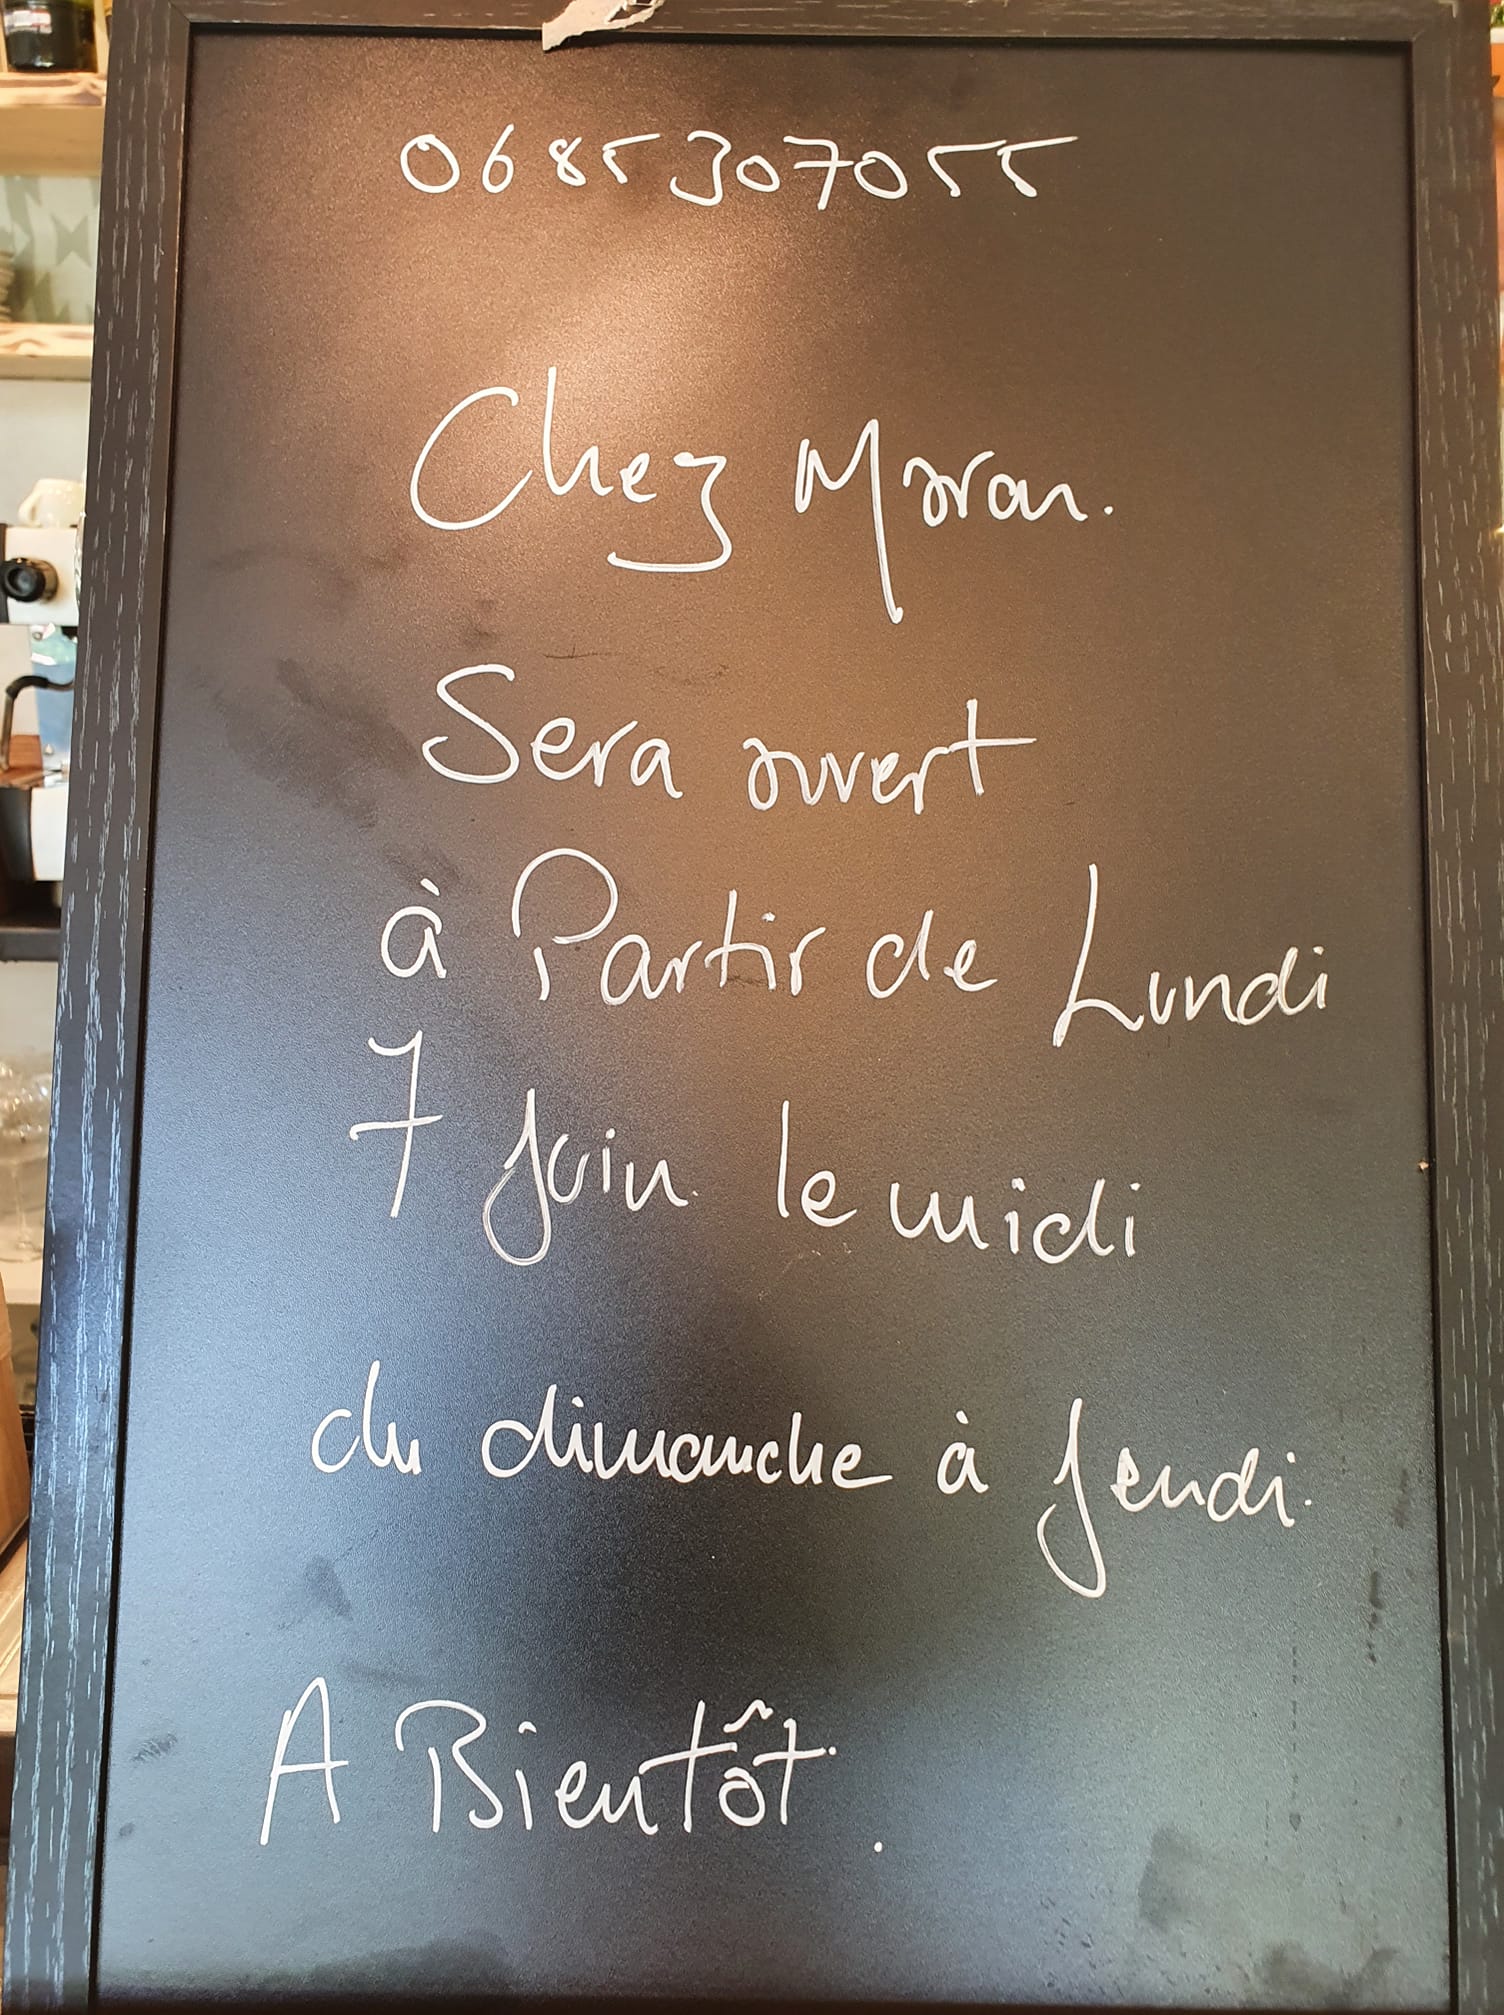 0685307055
Chez Moran.
Sera ouvert
à Partir de Lundi
7 Juin le midi
du dimanche à Jeudi.
A Bientôt.